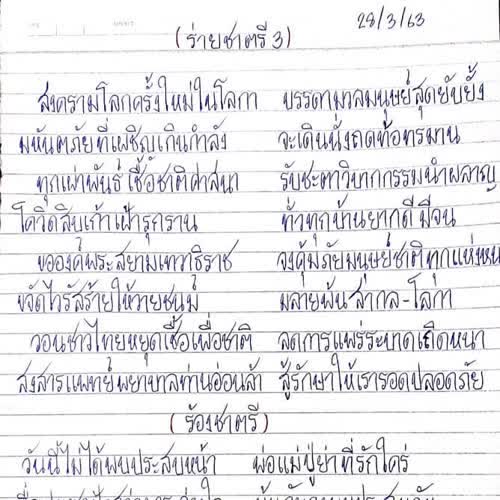 28/3/63
(ร่ายชาตรี 3)
สงครามโลกครั้งใหม่ในโลกา บรรดามาลมนุษย์สุดยับยั้ง
มหันตภัยที่เผชิญเกินกำลัง จะเดินนั่งถดท้อทรมาน
ทุกเผ่าพันธุ์ เชื้อชาติศาสนา รับชะตาวิบากกรรมนำผลาญ
โควิดสิบเก้าเฝ้ารุกราน ทั่วทุกบ้านยากดี มีจน
ขอองค์พระสยามเทวาธิราช จงคุ้มภัยมนุษย์ชาติทุกแห่งหน
ขจัดไวรัสร้ายให้วายชนม์ มลายพ้นสากล-โลกา
วอนชาวไทยหยุดเชื้อเพื่อชาติ ลดการแพร่ระบาดเถิดหนา
สงสารแพทย์พยาบาลท่านอ่อนล้า สู้รักษาให้เรารอดปลอดภัย
(ร้องชาตรี)
วันนี้ไม่ได้พบประสบหน้า พ่อแม่ปู่ย่าที่รักใคร่